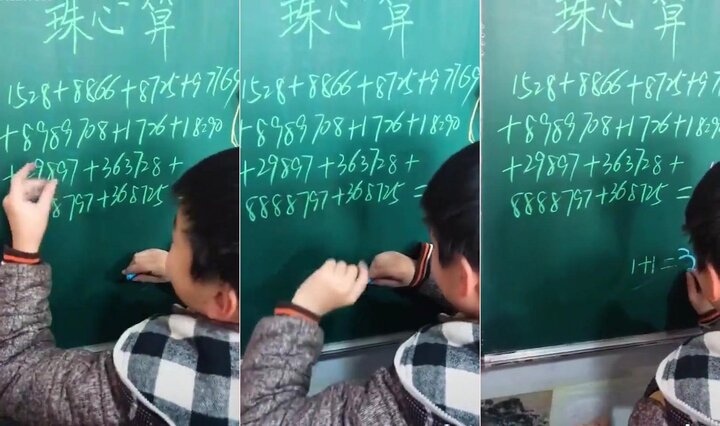 珠心算
1528+8866+8725+97769
+8989708+1726+18290
+29897+363728+
8797+368725
珠心算
1528+8866+8725+97769
+8989708+1726+18290
+29897+363728+
8888797+368725=
珠心算
1528+8866+8725+9776
+8989708+1726+1829
+29897+363728+
8888797+368725=
1+1=3